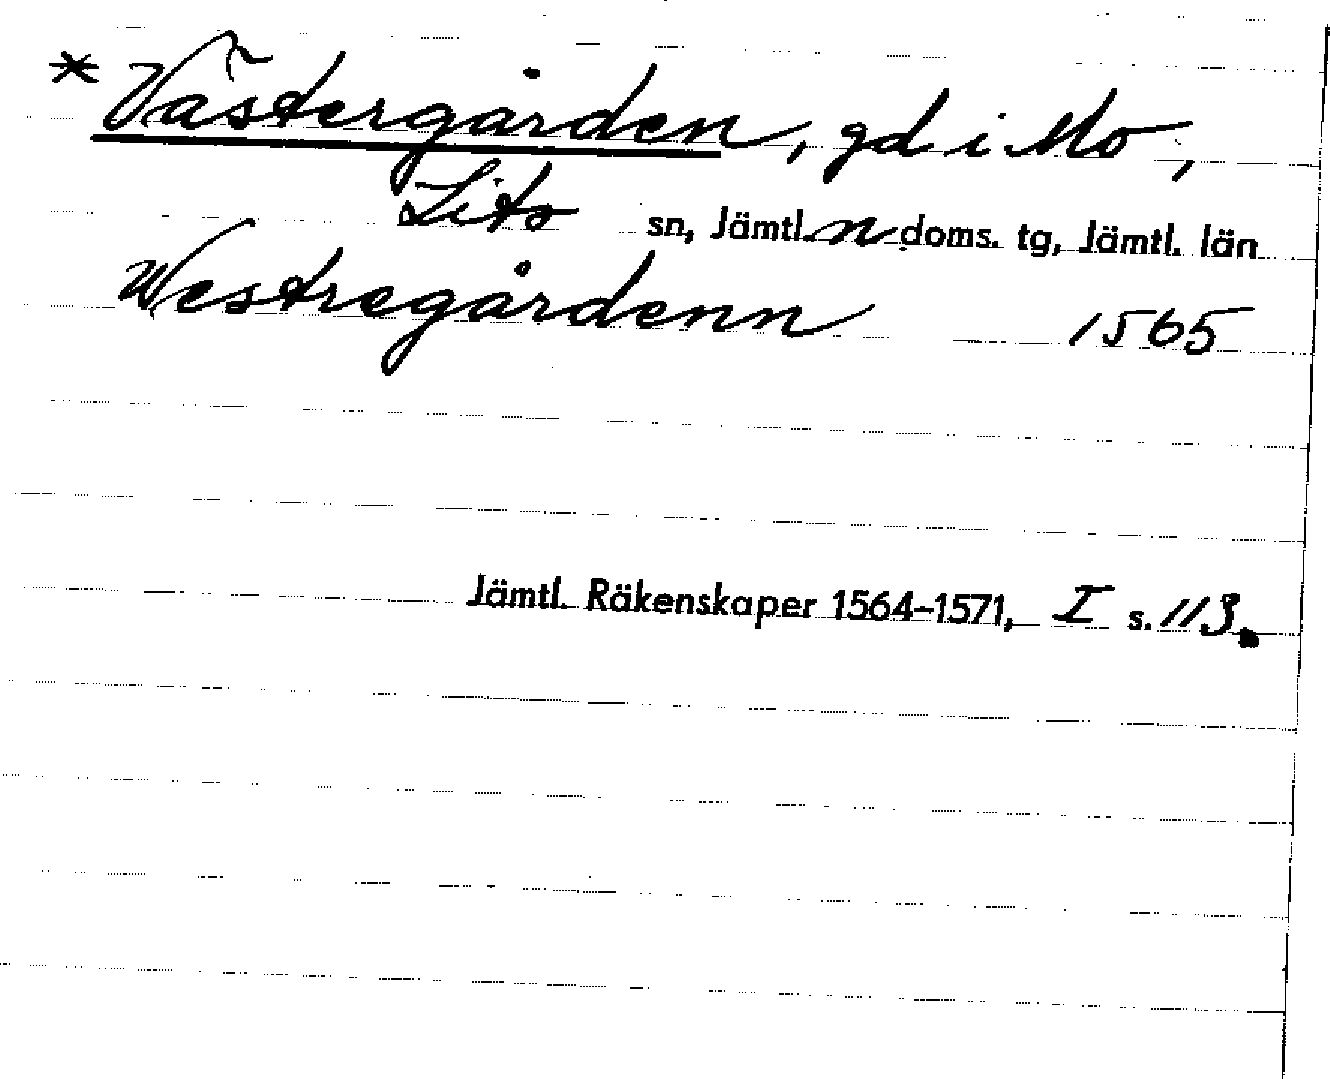 * Västergården, gd i Mo,
Lits sn, Jämtl. n doms. tg, Jämtl. län
Westregårdenn 1565
Jämtl. Räkenskaper 1564-1571, I s. 113.